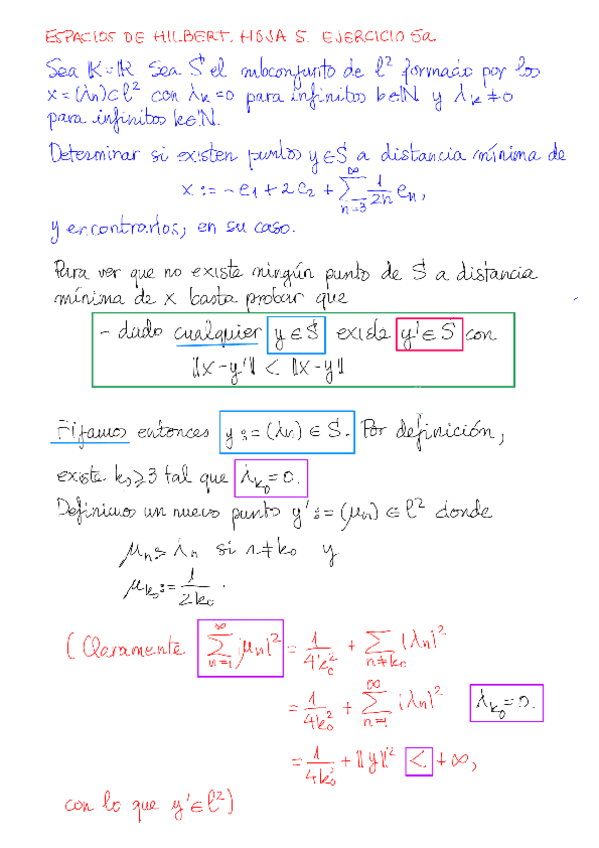 ESPACIOS DE HILBERT. HOJA 5. EJERCICIO 5a.
Sea K=ℝ. Sea S el subconjunto de l² formado por los
x=(λn)⊂l² con λk=0 para infinitos k∈ℕ y λk≠0
para infinitos k∈ℕ.
Determinar si existen puntos y∈S a distancia mínima de
x := -e₁ + 2e₂ + ∑_{n=3}^{∞} 1/2n eₙ,
y encontrarlos, en su caso.
Para ver que no existe ningún punto de S a distancia
mínima de x basta probar que
- dado cualquier y∈S existe y'∈S con
‖x-y'‖ < ‖x-y‖
Fijamos entonces y := (λn) ∈ S. Por definición,
existe k₀≥3 tal que λk₀=0.
Definimos un nuevo punto y' := (μn) ∈ l² donde
μn := λn si n≠k₀ y
μk₀ := 1/2k₀.
(Claramente ∑_{n=1}^{∞} |μn|² = 1/4k₀² + ∑_{n≠k₀} |λn|²
= 1/4k₀² + ∑_{n=1}^{∞} |λn|² λk₀=0.
= 1/4k₀² + ‖y‖² < +∞,
con lo que y'∈l²)